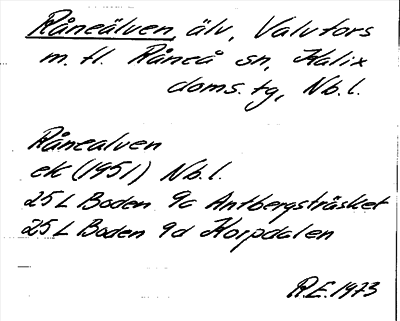 Råneälven, älv, Valvfors
m. fl. Råneå sn, Kalix
doms. tg, Nb. l.
Råneälven
ek (1951) Nb. l.
25 L Boden 9c Antbergsträsket
25 L Boden 9d Korpdalen
R.E. 1973